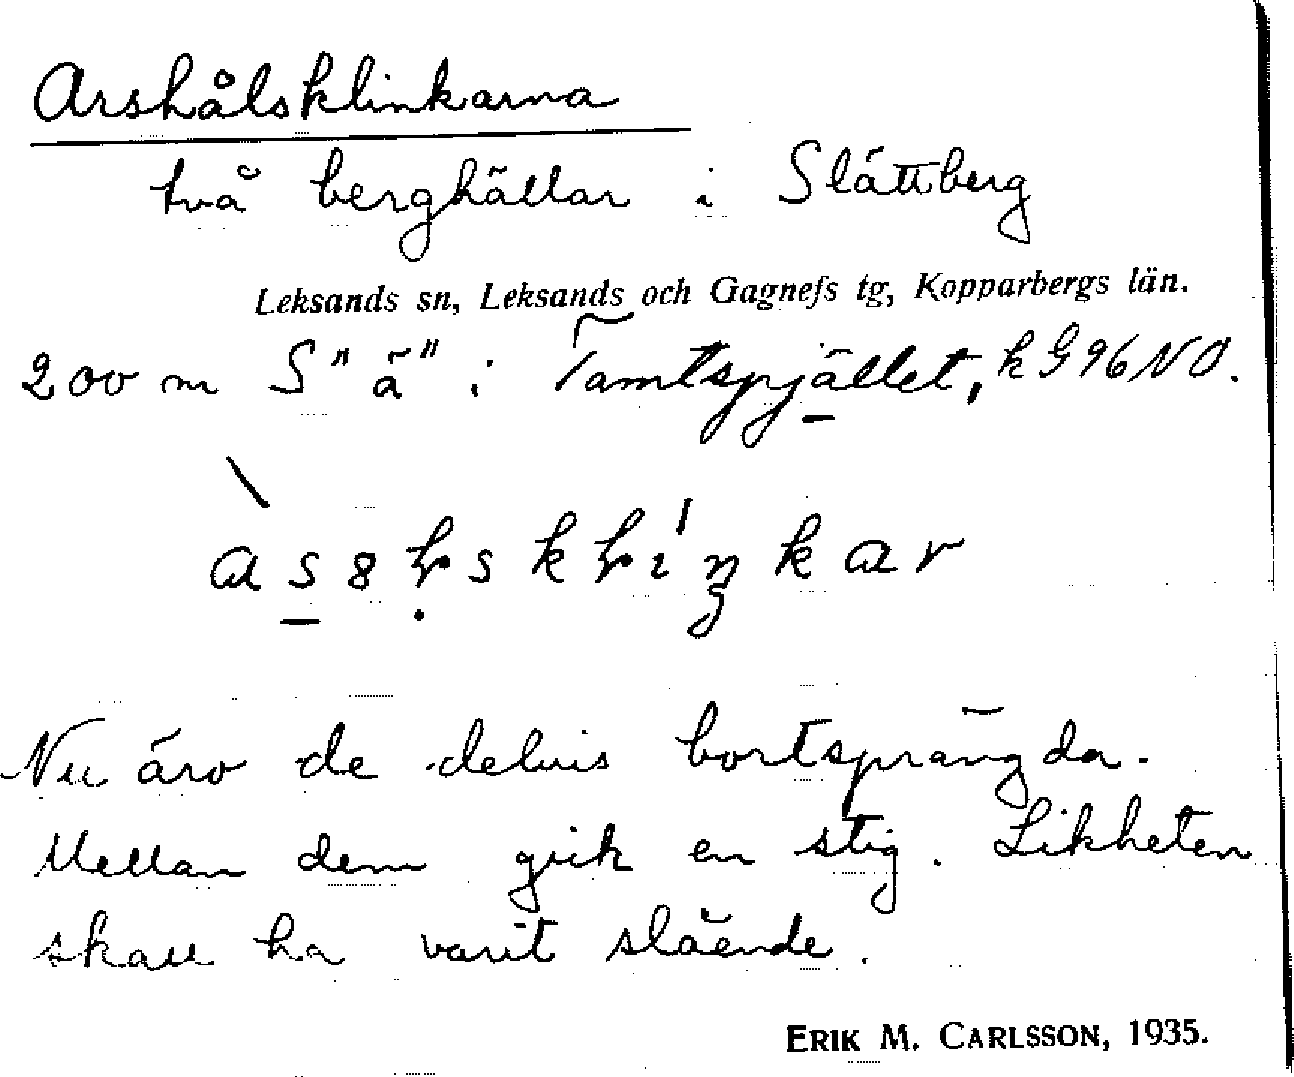 Arshålsklinkarna
två berghällar i Slättberg
Leksands sn, Leksands och Gagnefs tg, Kopparbergs län.
200 m S "ä" i Tamtspjället, k G 96 NO.
Nu äro de delvis bortsprängda.
Mellan dem gick en stig. Likheten
skall ha varit slående.
ERIK M. CARLSSON, 1935.